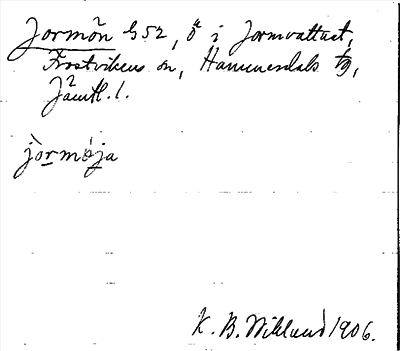 Jormön G52, ö i Jormvattnet,
Frostvikens sn, Hammerdals tg,
Jämtl. l.
jòrmǿja
K. B. Wiklund 1906.